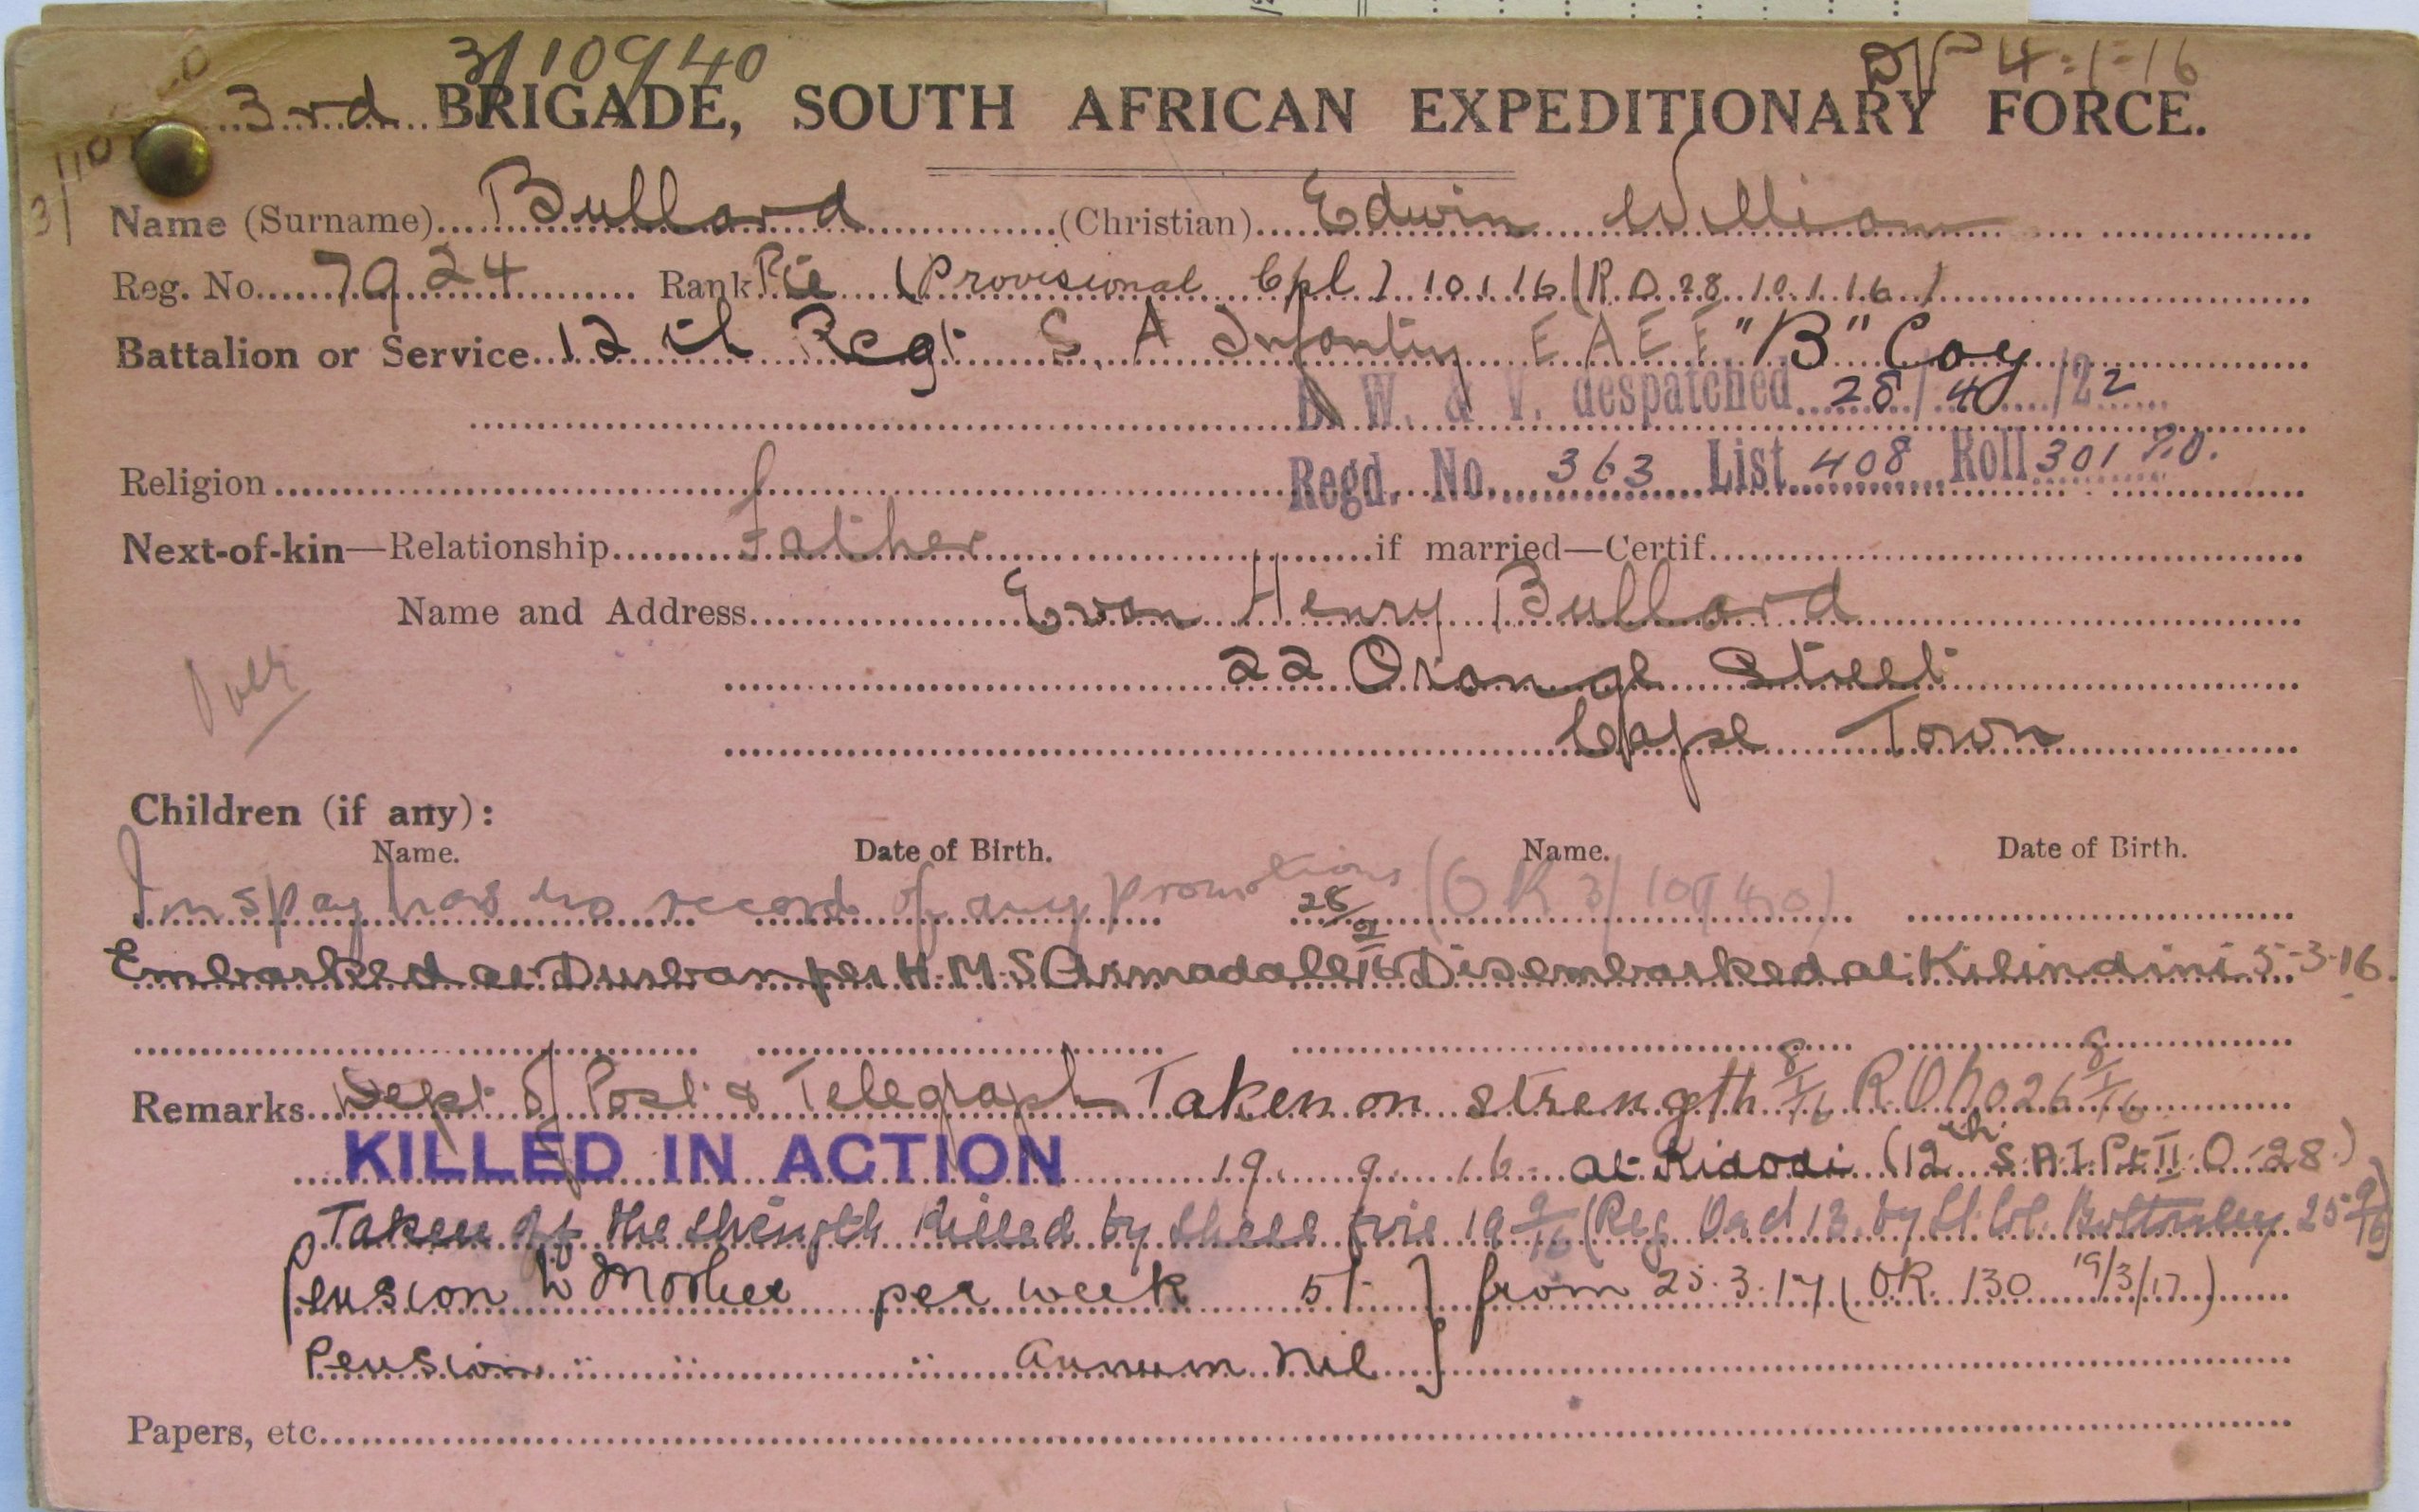 3/10940
DP 4-1-16
3rd BRIGADE, SOUTH AFRICAN EXPEDITIONARY FORCE.
Name (Surname) Bullard (Christian) Edwin William
Reg. No. 7924 Rank Pte (Provisional Cpl) 10.1.16 (R.O. 28. 10.1.16)
Battalion or Service 12th Regt S. A Infantry E A E F "B" Coy
B. W. & V. despatched 28/4/22
Religion Regd. No. 363 List 408 Roll 301
Next-of-kin—Relationship Father if married—Certif.
Name and Address Evan Henry Bullard
22 Orange Street
Cape Town
Over
Children (if any):
Name. Date of Birth. Name. Date of Birth.
Imspay has no record of any promotions (OR 3/10940)
Embarked at Durban per H.M.S Armadale 28/2/16 Disembarked at Kilindini 5-3-16.
Remarks Dept of Post & Telegraph Taken on strength 8/1/16 R.O No 26 8/1/16
KILLED IN ACTION 19. 9. 16 at Kidodi (12th S.A.I. Pt II O-28.)
Taken off the strength killed by shell fire 19 9/16 (Reg Ord 13. by Lt. Col. 25 9/16)
Pension to Mother per week 5/- } from 25.3.17 (OR. 130 19/3/17)
Pension " " " annum nil }
Papers, etc.